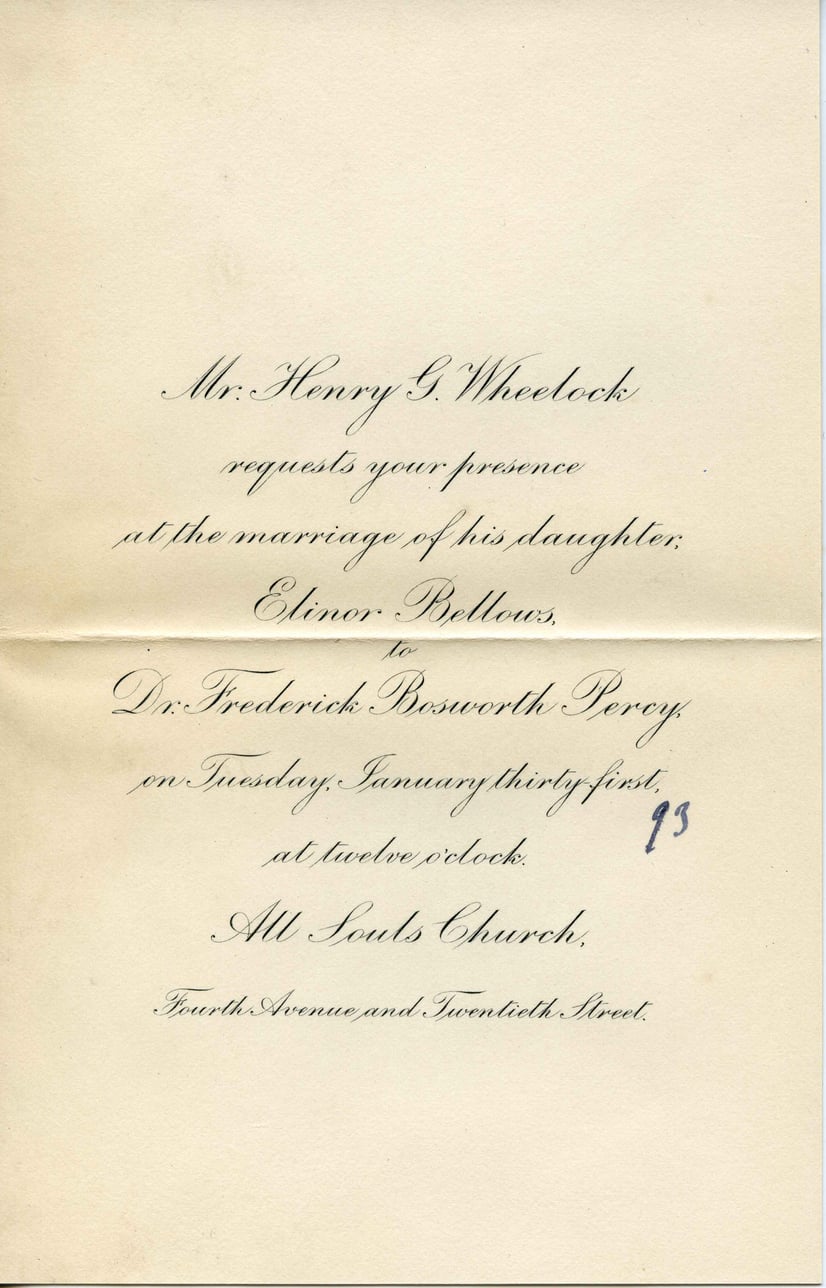 Mr. Henry G. Wheelock
requests your presence
at the marriage of his daughter,
Elinor Bellows,
to
Dr. Frederick Bosworth Percy,
on Tuesday, January thirty-first,
93
at twelve o'clock.
All Souls Church,
Fourth Avenue and Twentieth Street.